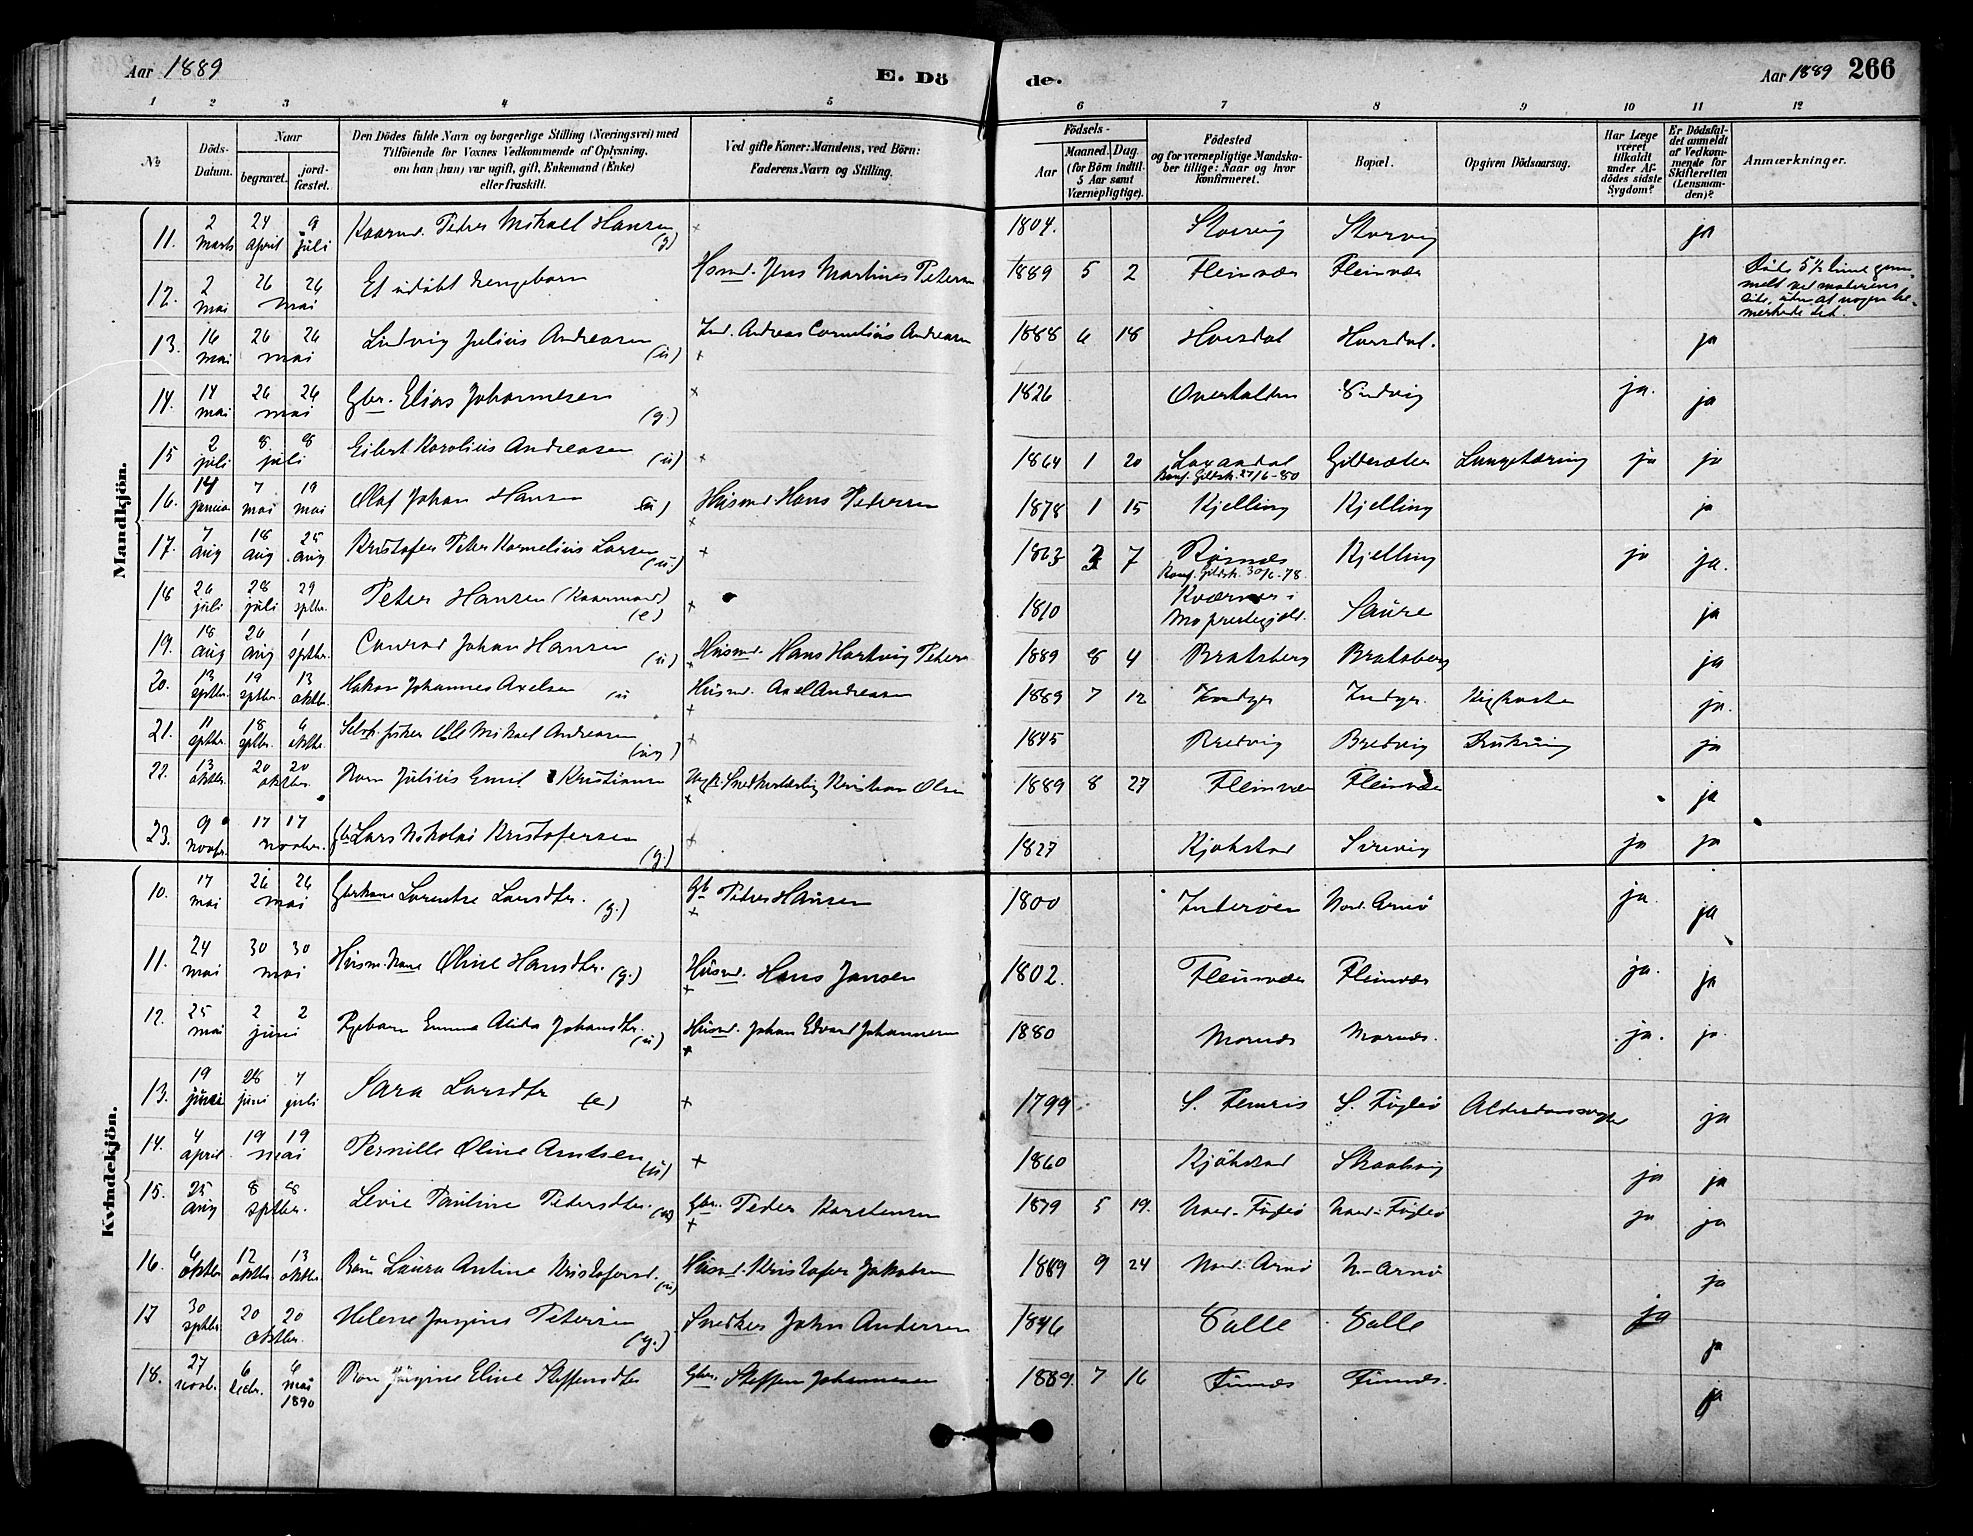 Aar 1889
E. Dö
de.
Aar 1889 266
1 2 3 4 5 6 7 8 9 10 11 12
No
Döds-Datum.
Naar
begravet.
jordfæstet.
Den Dödes fulde Navn og borgerlige Stilling (Næringsvei) med
Tilföiende for Voxnes Vedkommende af Oplysning,
om han (hun) var ugift, gift, Enkemand (Enke)
eller fraskilt.
Ved gifte Koner: Mandens, ved Börn:
Faderens Navn og Stilling.
Födsels-
Aar
Maaned. Dag.
(for Börn indtil
5 Aar samt
Værnepligtige).
Födested
og for værnepligtige Mandskaber tillige: Naar og hvor
konfirmeret.
Bopæl.
Opgiven Dödsaarsag.
Har Læge været tilkaldt under Afdödes sidste Sygdom?
Er Dödsfaldet anmeldt af Vedkommende for Skifteretten (Lensmanden)?
Anmærkninger.
Mandkjön.
11. 2 marts 24 april 9 juli Kaarmd. Peder Mikael Hansen (g) + 1804. Storvig Storvig ja
12. 2 mai 26 26 mai Et udøbt drengebarn Hsmd. Jens Martinus Petersen 1889 5 2 Fleinvær Fleinvær
13. 16 mai 26 26 mai Ludvig Julius Andreasen (u) Ind. Andreas Cornelius Andreasen + 1888 6 18 Horsdal Horsdal. ja
14. 14 mai 26 26 mai Gbr. Elias Johannesen (g.) + 1826 Overhalden Sundvig ja. ja
15 2 juli 8 8 juli Eibert Karolius Andreasen (u) + 1864 1 20 Laxaadal Konf. Gildsk. 27/6-80 Gildesæter Lungetæring ja ja
16. 14 januar 7 mai 19 mai Olaf Johan Hansen (u) Husmd Hans Pedersen + 1878 1 15 Kjelling Kjelling ja
17. 7 aug 18 aug 25 aug Kristofer Peter Kornelius Larsen (u.) + 1863 3 7 Røsnes Konf. Gildsk. 30/6-78. Kjelling ja ja.
18 26 juli 28 juli 29 sptbr. Peter Hansen (Kaarmand) (e) + 1810 Kværnes i Mo prestegjeld. Saure ja
19. 18 aug 26 aug 1 sptbr. Conrad Johan Hansen (u) Husmd. Hans Hartvig Peters + 1889 8 4 Bratsberg Bratsberg ja
20. 13 sptbr. 19 sptbr. 13 oktbr. Hakon Johannes Axelsen (u Husmd. Axel Andreasen + 1889 7 12 Indyr Indyr. Kighoste ja.
21. 11 sptbr. 18 sptbr. 6 oktbr. Selvst. fisker Ole Mikael Andreasen (ug) + 1845 Bredvig Bredvig Drukning ja
22. 13 oktbr. 20 20 oktbr. Barn Julius Emil Kristiansen Ugift Snedkerlærling Kristian Olsen + 1889 8 27 Fleinvær Fleinvær ja
23. 9 novbr. 17 17 novbr. Gb Lars Nikolai Kristofersen (g.) + 1827 Kjøkstad Sørvig ja ja
Kvindekjön.
10. 17 mai 26 26 mai Gbrkone Lorentse Larsdtr. (g.) Gb Peder Hansen + 1800 Inderøen Nord. Arnø ja. ja
11. 24 mai 30 30 mai Husm. kone Oline Hansdtr. (g.) Husmd. Hans Jansen + 1802. Fleinvær Fleinvær ja. ja
12. 25 mai 2 2 juni Pigebarn Emma Alida Johansdtr. (u) Husmd. Johan Edvard Johannesen + 1880 Mornæs Mornæs. ja. ja
13. 19 juni 28 juni 7 juli Sara Larsdtr (e) + 1799 S. Femris S. Fuglø Alderdomssvaghed ja
14. 4 april 19 19 mai Pernille Oline Arntsen (u) + 1860 Kjøkstad Skaalsvig ja ja
15. 25 aug 8 8 sptbr. Levie Pauline Pedersdtr. (u) Gbr. Peder Karstensen + 1879 5 19. Nord-Fuglø Nord-Fuglø ja ja
16. 6 oktbr 12 oktbr. 13 oktbr. Barn Laura Antine Kristofersd. (u) Husmd. Kristofer Jakobsen 1889 9 24 Nord. Arnø N-Arnø ja
17 30 sptbr 20 20 oktbr. Helene Jørgine Petersen (g.) Snedker John Andersen 1846 Valle Valle ja ja
18. 27 novbr. 6 decbr. 6 mai 1890 Barn Jørgine Eline Steffensdtr Gbr. Steffen Johannesen 1889. 7 16 Finnæs Finnæs. ja